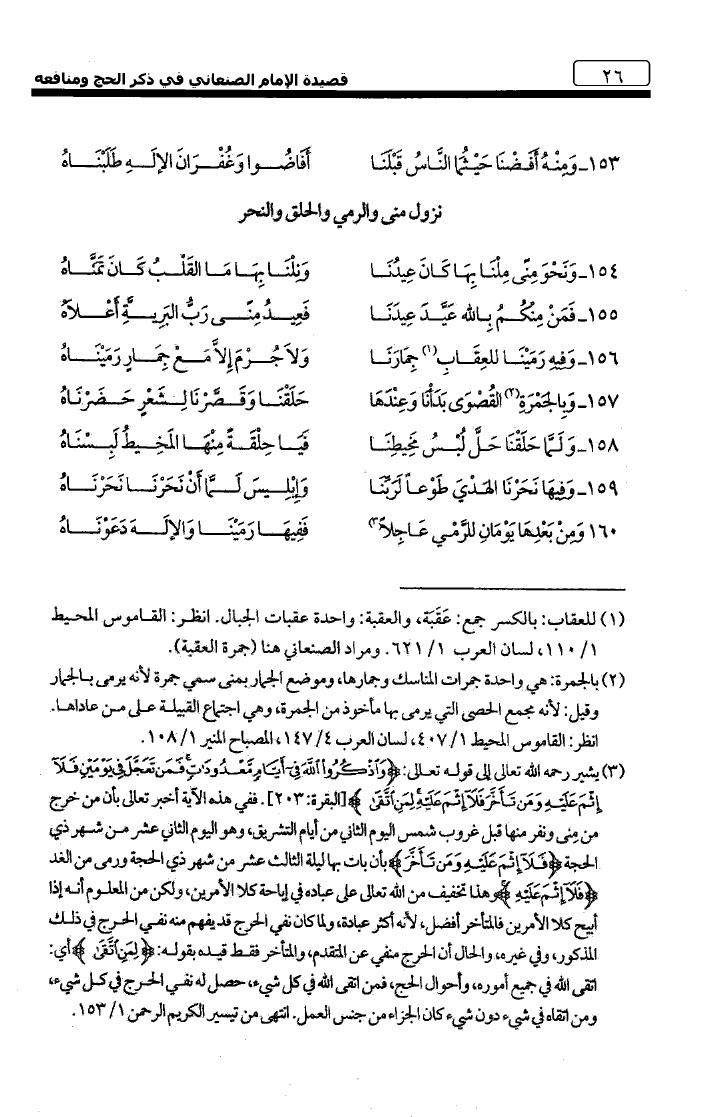 ٢٦ قصيدة الإمام الصنعاني في ذكر الحج ومنافعه
١٥٣ـ وَمِنْهُ أَفَضْنَا حَيْثُمَا النَّاسُ قَبْلَنَا أَفَاضُـــوا وَغُفْـــرَانَ الإِلَـــهِ طَلَبْنَـــاهُ
نزول منى والرمي والحلق والنحر
١٥٤ـ وَنَحْوَ مِنًى مِلْنَا بِهَا كَانَ عِيدُنَـا وَنِلْنَـا بِهَـا مَـا القَلْـبُ كَـانَ تَمَنَّـاهُ
١٥٥ـ فَمَنْ مِنْكُـمُ بِـاللهِ عَيَّـدَ عِيدَنَـا فَعِيـدُ مِنًـى رَبُّ البَرِيـةِ أَعْـلاَهُ
١٥٦ـ وَفِيهِ رَمَيْنَـا لِلعِقَـابِ(١) جِمَارَنَـا وَلاَ جُـرْمَ إِلاَّ مَـعْ جِمَـارٍ رَمَيْنَـاهُ
١٥٧ـ وَبِالجَمْرَةِ(٢) القُصْوَى بَدَأْنَا وَعِنْدَهَا حَلَقْنَـا وَقَصَّرْنَا لِـشَعْرٍ حَـضَرْنَاهُ
١٥٨ـ وَلَمَّا حَلَقْنَا حَلَّ لُبْسُ مَخِيطِنَـا فَيَـا حِلْقَـةً مِنْهَـا المَخِـيطُ لَبِـسْنَاهُ
١٥٩ـ وَفِيهَا نَحَرْنَا الهَدْيَ طَوْعـاً لَرَبِّنَـا وَإِبْلِـيسَ لَـمَّا أَنْ نَحَرْنَـا نَحَرْنَـاهُ
١٦٠ وَمِنْ بَعْدِهَا يَوْمَانِ لِلرَّمْـي عَـاجِلاً(٣) فَفِيهَـا رَمَيْنَـا وَالإِلَـهَ دَعَوْنَـاهُ
(١) للعقاب: بالكسر جمع: عَقَبَة، والعقبة: واحدة عقبات الجبال. انظر: القـاموس المحـيط
١/ ١١٠، لسـان العرب ١/ ٦٢١. ومراد الصنعاني هنا (جمرة العقبة).
(٢) بالجمرة: هي واحدة جمرات المناسك وجمارها، وموضع الجمار بمنى سمي جمرة لأنه يرمى بـالجمار
وقيل: لأنه مجمع الحصى التي يرمى بها مأخوذ من الجمرة، وهي اجتماع القبيلة عـلى مـن عاداهـا.
انظر: القاموس المحيط ١/ ٤٠٧، لسان العرب ٤/ ١٤٧، المصباح المنير ١/ ١٠٨.
(٣) يشير رحمه الله تعالى إلى قولـه تعـالى: ﴿وَاذْكُرُوا اللَّهَ فِي أَيَّامٍ مَّعْدُودَاتٍ فَمَن تَعَجَّلَ فِي يَوْمَيْنِ فَلَا
إِثْمَ عَلَيْهِ وَمَن تَأَخَّرَ فَلَا إِثْمَ عَلَيْهِ لِمَنِ اتَّقَى﴾ [البقرة: ٢٠٣]. ففي هذه الآية أخبر تعالى بأن من خرج
من مِنى ونفر منها قبل غروب شمس اليوم الثاني من أيام التشريق، وهو اليوم الثاني عشر مـن شـهر ذي
الحجة ﴿فَلَا إِثْمَ عَلَيْهِ وَمَن تَأَخَّرَ﴾ بأن بات بها ليلة الثالث عشر من شهر ذي الحجة ورمى من الغد
﴿فَلَا إِثْمَ عَلَيْهِ﴾ وهذا تخفيف من الله تعالى على عباده في إباحة كلا الأمرين، ولكن من المعلوم أنـه إذا
أبيح كلا الأمرين فالمتأخر أفضل، لأنه أكثر عبادة، ولما كان نفي الحرج قد يفهم منه نفـي الحـرج في ذلـك
المذكور، وفي غيره، والحال أن الحرج منفي عن المتقدم، والمتأخر فقـط قيـده بقولـه: ﴿لِمَنِ اتَّقَى﴾ أي:
اتقى الله في جميع أموره، وأحوال الحج، فمن اتقى الله في كل شيء، حصل له نفـي الحـرج في كـل شيء،
ومن اتقاه في شيء دون شيء كان الجزاء من جنس العمل. انتهى من تيسير الكريم الرحمن ١/ ١٥٣.